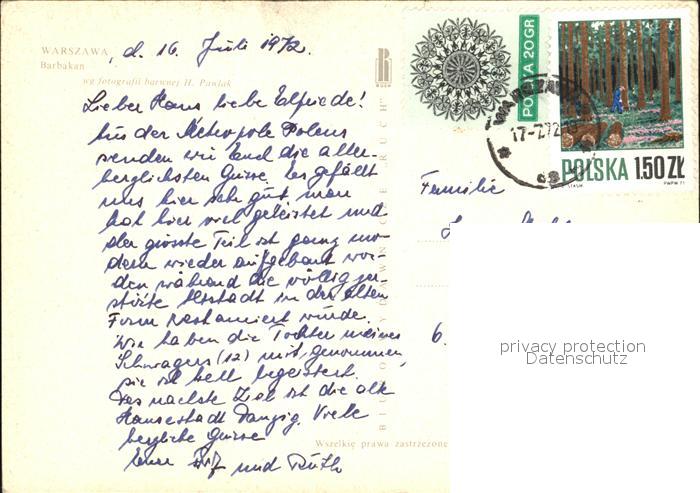 WARSZAWA, d. 16. Juli 1972.
Barbakan
wg fotografii barwnej H. Pawlak
Lieber Hans liebe Elfriede!
Aus der Metropole Polens
senden wir Euch die aller-
herzlichsten Grüsse. Es gefällt
uns hier sehr gut. man
hat hier viel geleistet und
der grösste Teil ist ganz mo-
dern wieder aufgebaut wor-
den während die völlig zer-
störte Altstadt in der alten
Form restauriert würde.
Wir haben die Tochter meines
Schwagers (12) mit genommen,
sie ist hell begeistert.
Das nächste Ziel ist die alte
Hansestadt Danzig. Viele
herzliche Grüsse
Eure und Ruth
RUCH
"RUCH"
Wszelkie prawa zastrzeżone
POLSKA 20 GR
POLSKA 1.50 ZŁ
PWPW 71
WARSZAWA
Familie
6.
privacy protection
Datenschutz